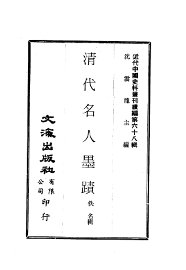 近代中國史料叢刊續編第六十八輯
沈雲龍主編
清代名人墨蹟
佚名輯
文海出版社
有限公司
印行